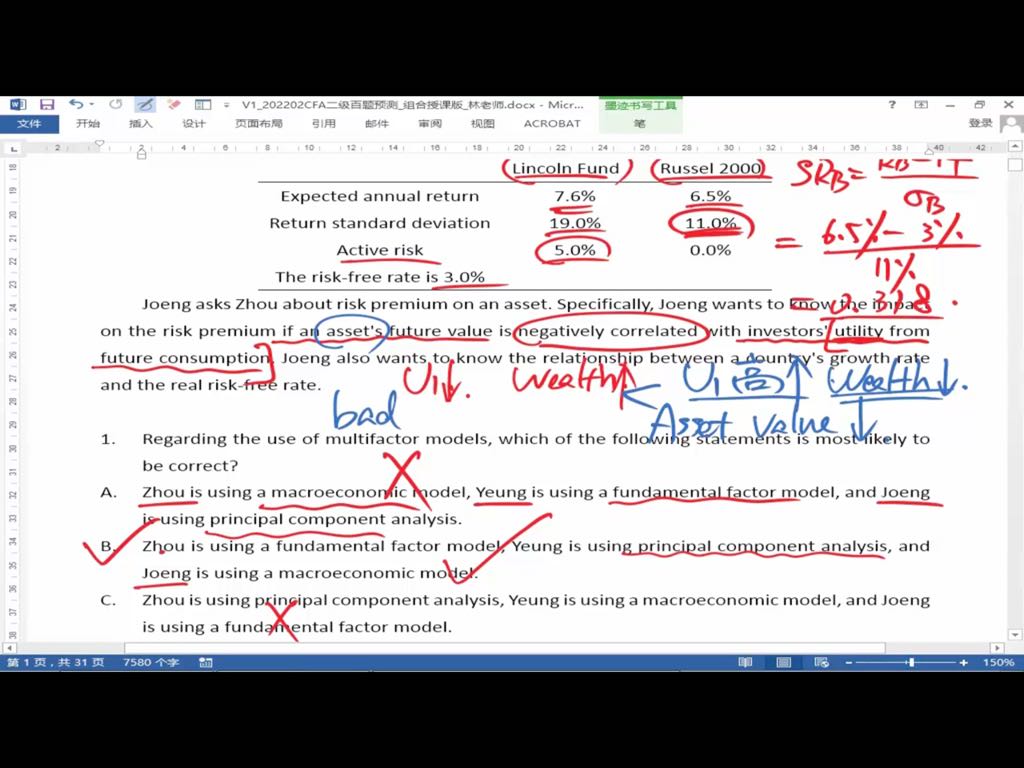 V1_202202CFA二级百题预测_组合授课版_林老师.docx - Micr...
墨迹书写工具
文件 开始 插入 设计 页面布局 引用 邮件 审阅 视图 ACROBAT 笔 登录
2 2 4 6 8 10 12 14 16 18 20 22 24 26 28 30 32 34 36 38 40 42
Lincoln Fund Russel 2000
SRB=
σB
Expected annual return 7.6% 6.5%
Return standard deviation 19.0% 11.0%
= 6.5%-3%
11%
Active risk 5.0% 0.0%
The risk-free rate is 3.0%
= 0.318.
Joeng asks Zhou about risk premium on an asset. Specifically, Joeng wants to know the impact
on the risk premium if an asset's future value is negatively correlated with investors' utility from
future consumption. Joeng also wants to know the relationship between a country's growth rate
and the real risk-free rate.
U1↓. Wealth↑ U1(高)↑ Wealth↓.
bad Asset value↓.
1. Regarding the use of multifactor models, which of the following statements is most likely to
be correct?
A. Zhou is using a macroeconomic model, Yeung is using a fundamental factor model, and Joeng
is using principal component analysis.
B. Zhou is using a fundamental factor model, Yeung is using principal component analysis, and
Joeng is using a macroeconomic model.
C. Zhou is using principal component analysis, Yeung is using a macroeconomic model, and Joeng
is using a fundamental factor model.
第 1 页，共 31 页 7580 个字 150%